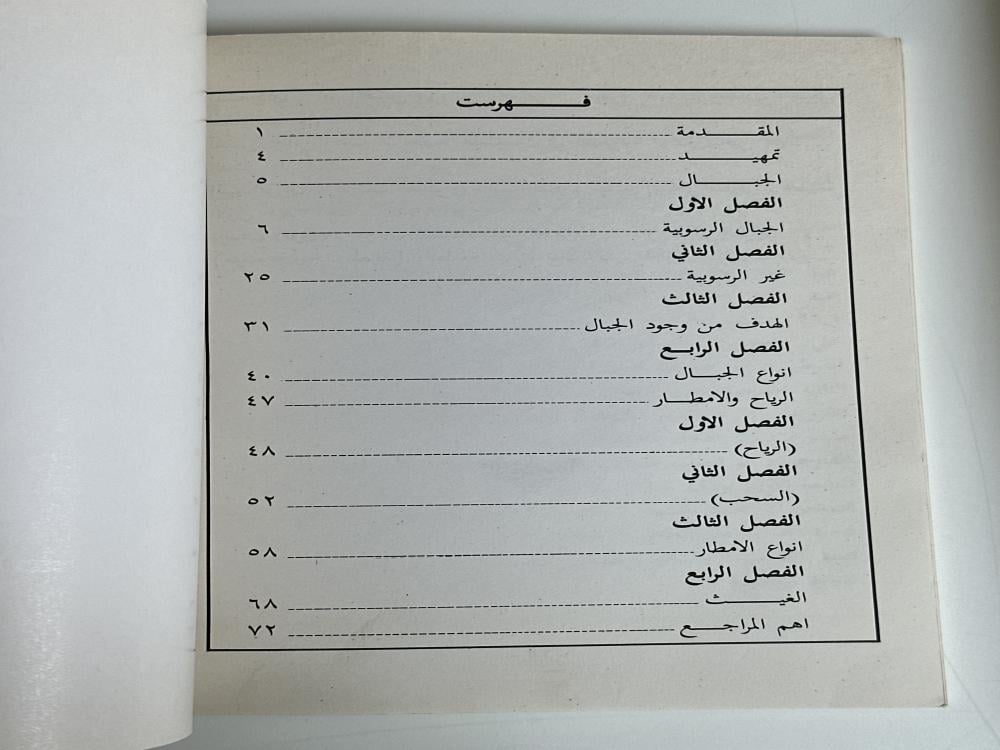 فهرست
المقدمة ١
تمهيد ٤
الجبال ٥
الفصل الاول
الجبال الرسوبية ٦
الفصل الثاني
غير الرسوبية ٢٥
الفصل الثالث
الهدف من وجود الجبال ٣١
الفصل الرابع
انواع الجبال ٤٠
الرياح والامطار ٤٧
الفصل الاول
(الرياح) ٤٨
الفصل الثاني
(السحب) ٥٢
الفصل الثالث
انواع الامطار ٥٨
الفصل الرابع
الغيث ٦٨
اهم المراجع ٧٢